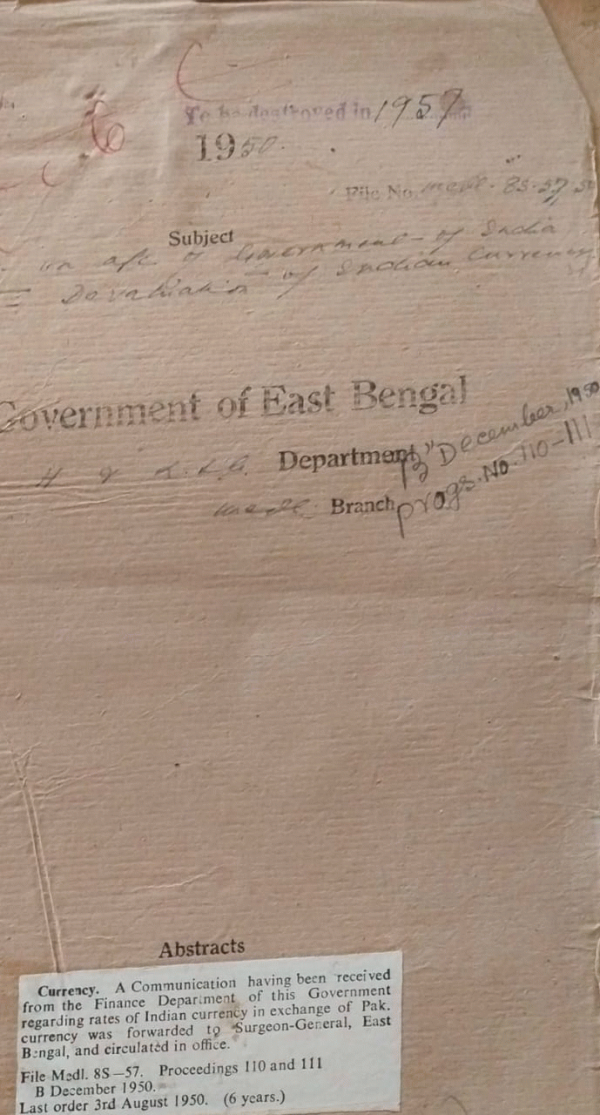 To be destroyed in 1957
1950.
File No. Medl. 8S-57
Subject
Government of India
Devaluation of Indian Currency
Government of East Bengal
H & L.S.G. Department
"B" December, 1950
Medl. Branch
progs. No. 110-111
Abstracts
Currency. A Communication having been received
from the Finance Department of this Government
regarding rates of Indian currency in exchange of Pak.
currency was forwarded to Surgeon-General, East
Bengal, and circulated in office.
File Medl. 8S—57. Proceedings 110 and 111
B December 1950.
Last order 3rd August 1950. (6 years.)